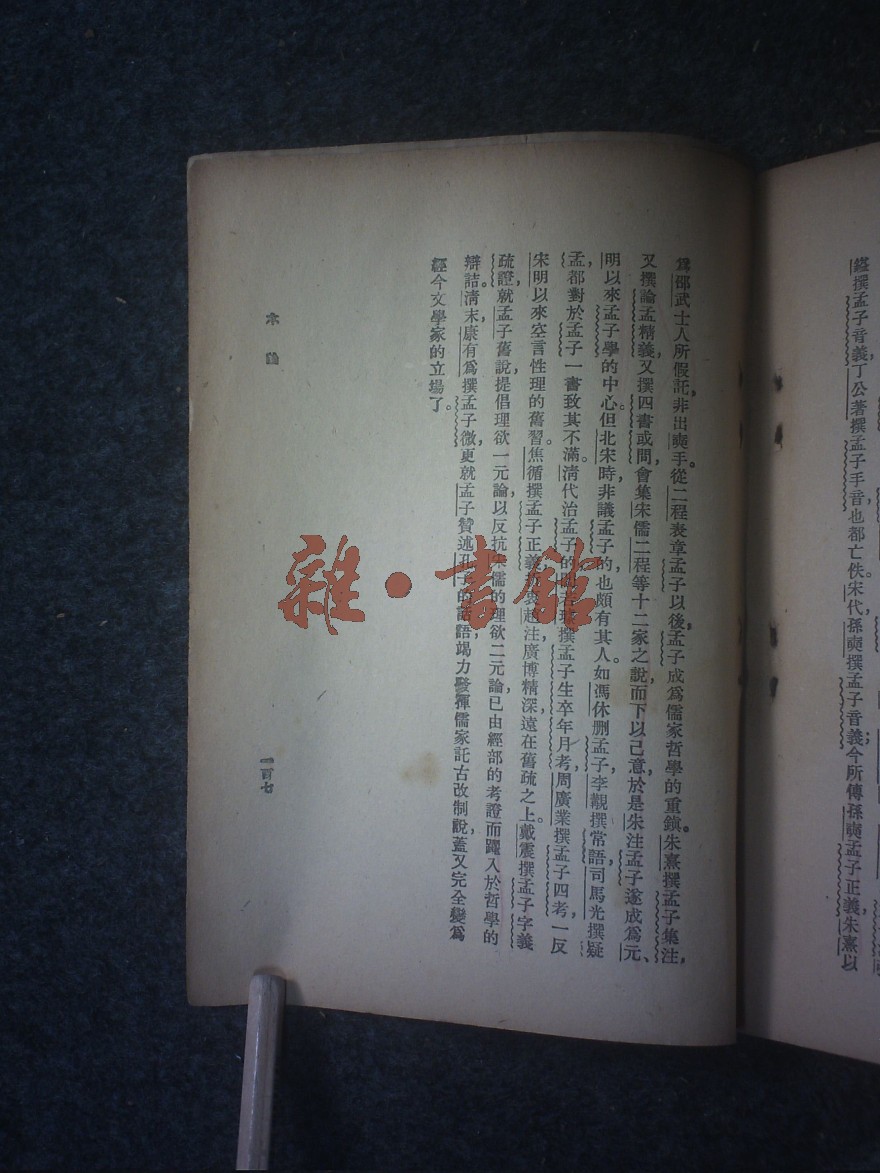 鎡撰孟子音義丁公著撰孟子手音也都亡佚宋代孫奭撰孟子音義今所傳孫奭孟子正義朱熹以
爲邵武士人所假託，非出奭手。從二程表章孟子以後，孟子成爲儒家哲學的重鎭。朱熹撰孟子集注，
又撰論孟精義，又撰四書或問，會集宋儒二程等十二家之說，而下以己意，於是朱注孟子遂成爲元、
明以來孟子學的中心。但北宋時非議孟子的，也頗有其人。如馮休删孟子，李覯撰常語，司馬光撰疑
孟，都對於孟子一書致其不滿。清代治孟子的，閻若璩撰孟子生卒年月考，周廣業撰孟子四考，一反
宋明以來空言性理的舊習。焦循撰孟子正義，折衷趙注，廣博精深，遠在舊疏之上。戴震撰孟子字義
疏證，就孟子舊說，提倡理欲一元論，以反抗宋儒的理欲二元論，已由經部的考證而躍入於哲學的
辯詰。清末，康有爲撰孟子微，更就孟子贊述孔子的話語，竭力發揮儒家託古改制說，蓋又完全變爲
經今文學家的立場了。
本論
一百七
雜·書館